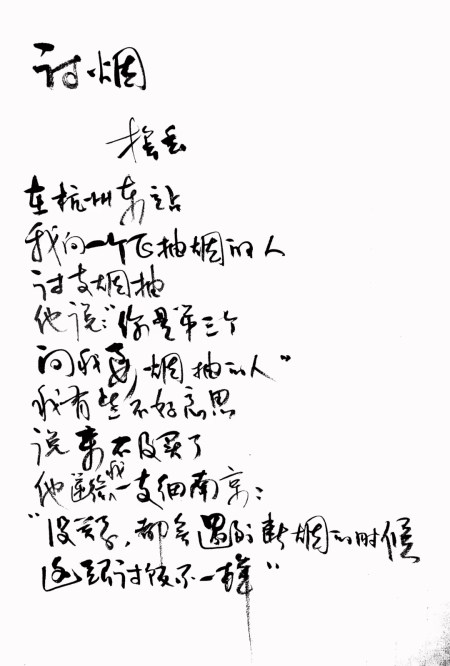 讨烟
在杭州东站
我向一个正抽烟的人
讨支烟抽
他说:“你是第三个
问我要烟抽的人”
我有些不好意思
说来不及买了
他递给我一支细南京:
“没关系,都会遇到断烟的时候
这跟讨饭不一样”